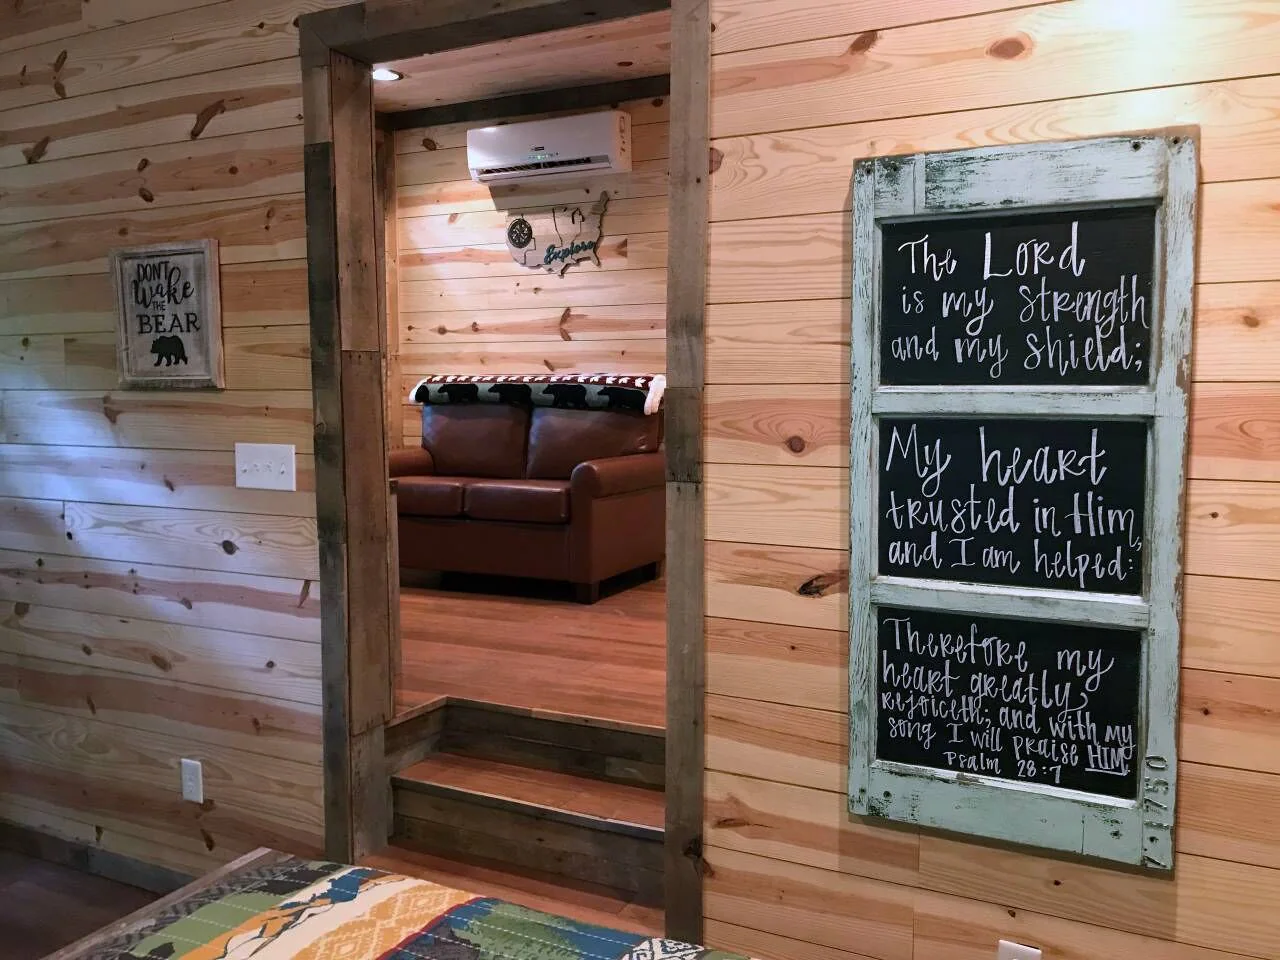 DON'T
Wake
THE
BEAR
Explore
The Lord
is my strength
and my shield;
My heart
trusted in Him,
and I am helped:
Therefore my
heart greatly
rejoiceth; and with my
song I will praise HIM.
Psalm 28:7
79 750